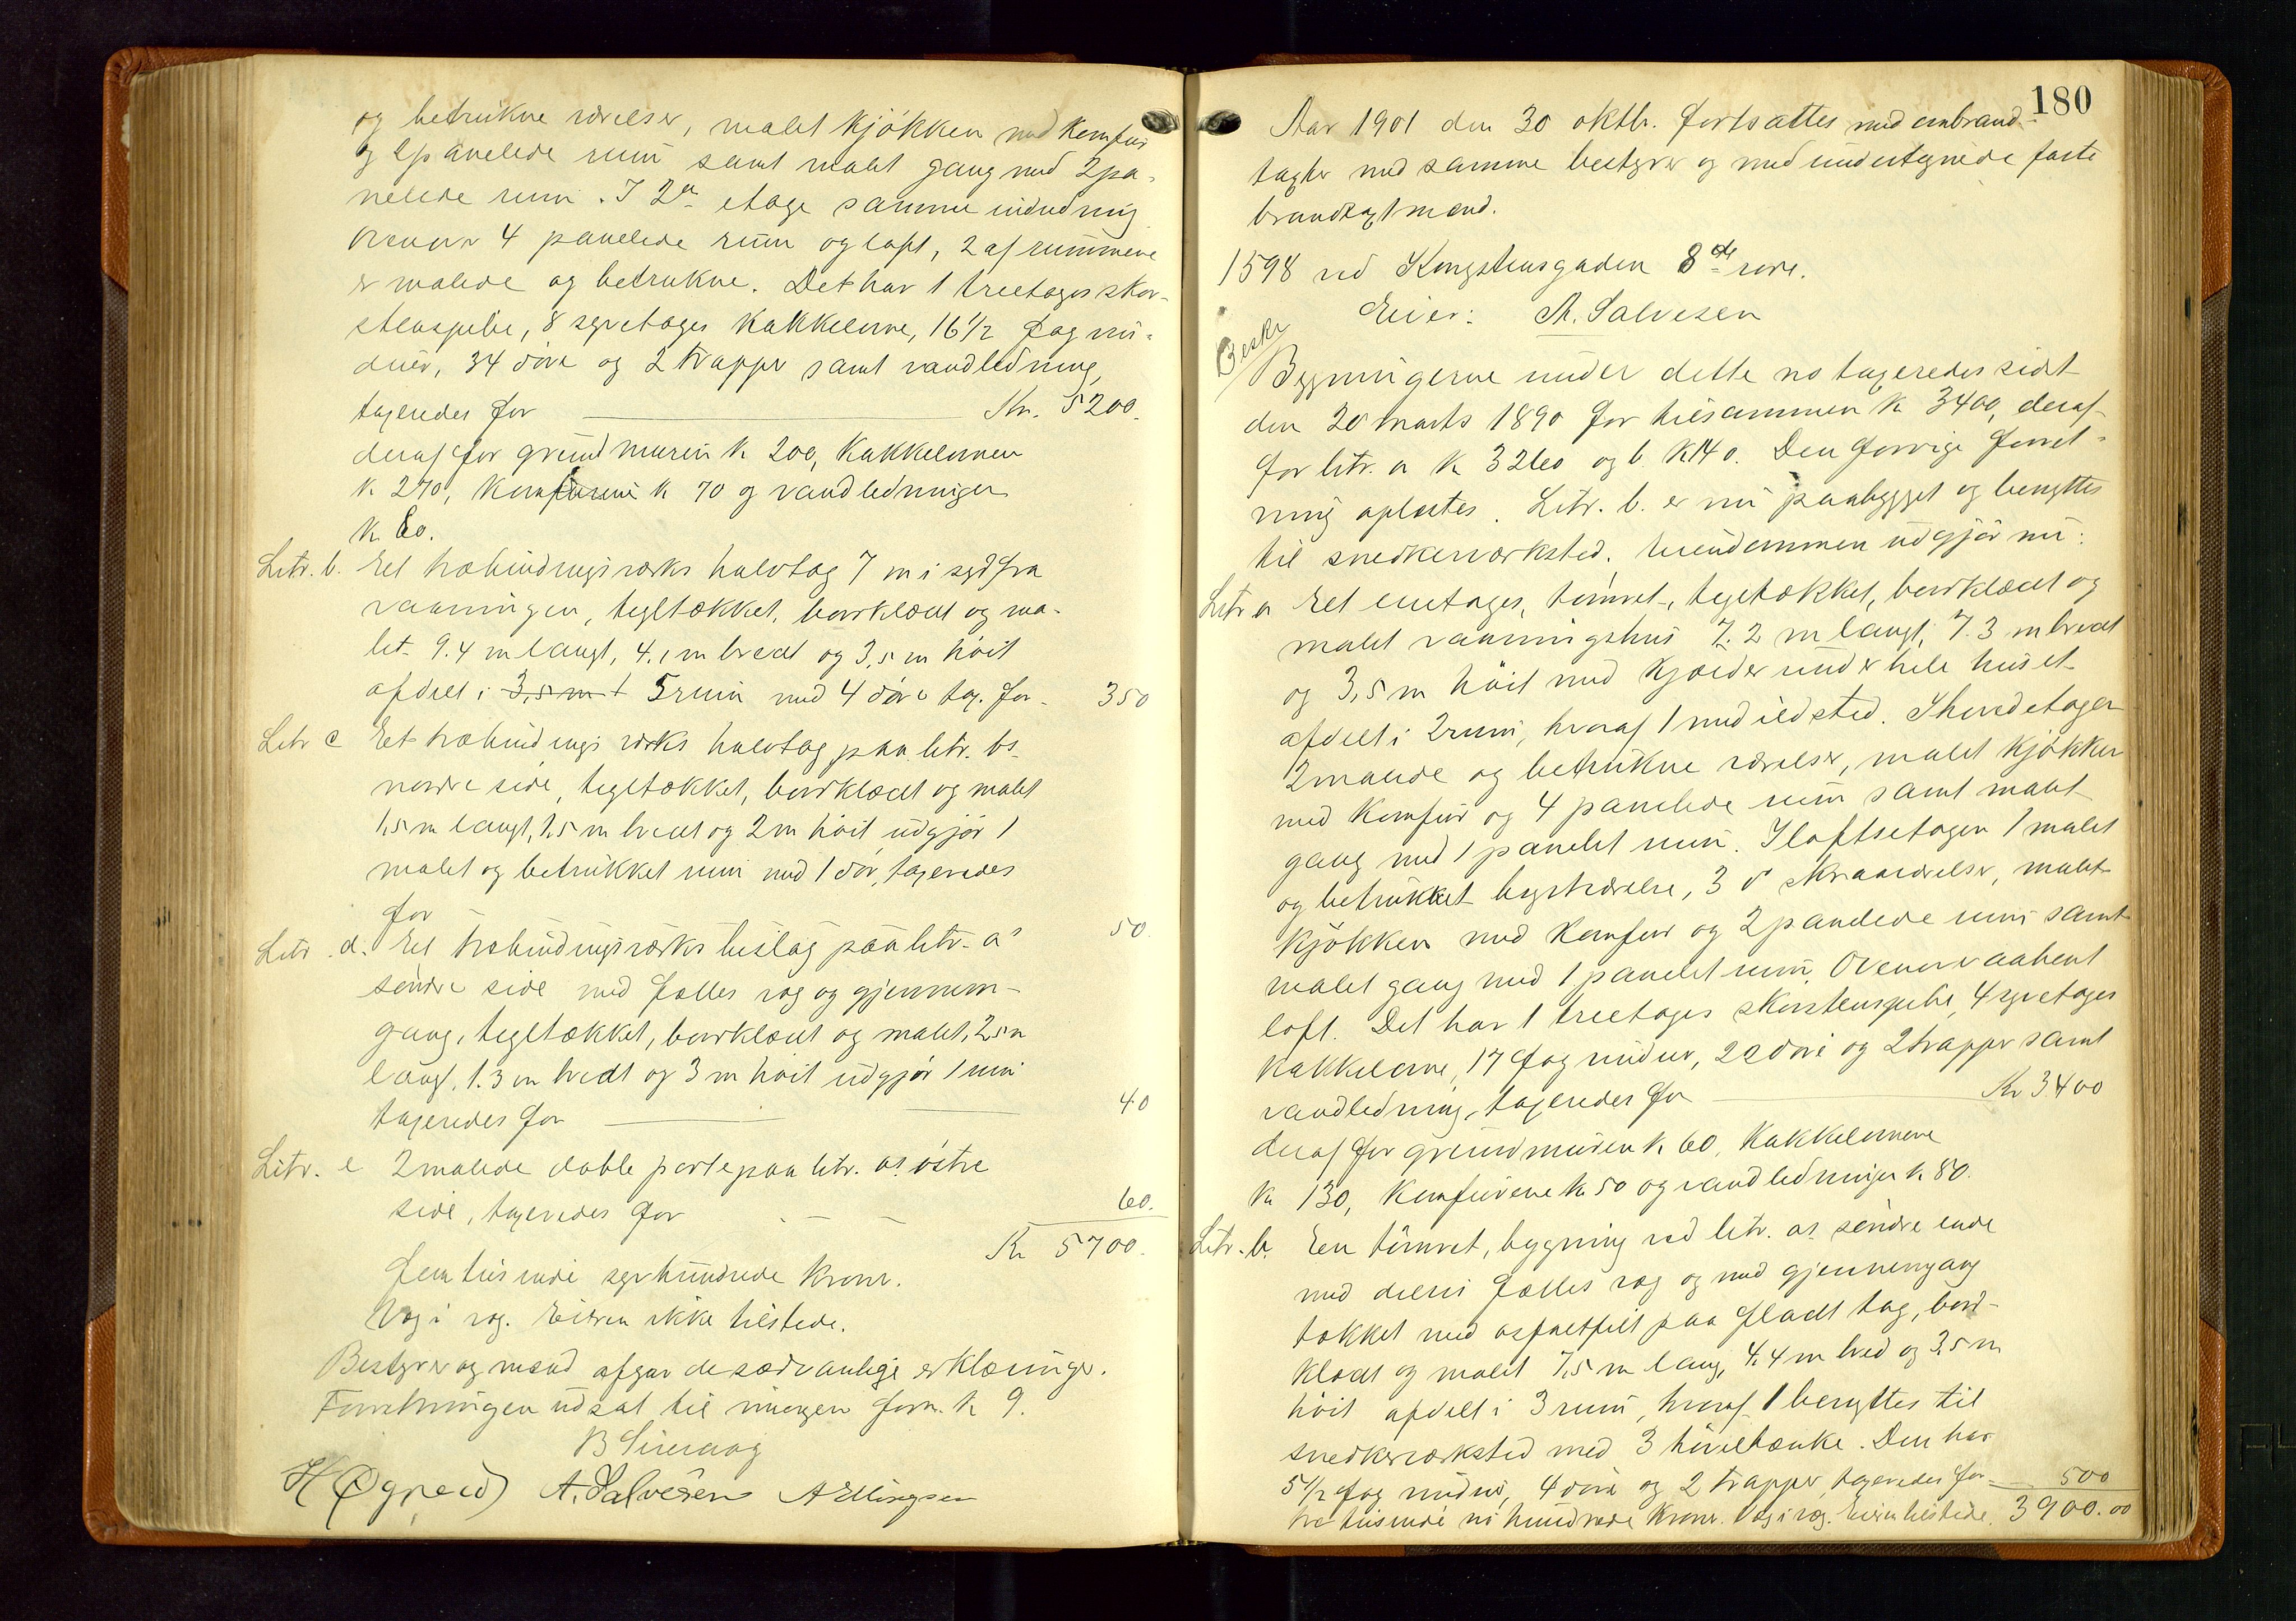 og betrukne værelser, malet kjøkken med komfur
og 2 panelede rum samt malet gang med 2 pa-
nelede rum. I 2en etage samme inddeling
Ovenover 4 panelede rum og loft, 2 af rummene
er malede og betrukne. Det har 1 treetages skor-
stenspibe, 8 syvetages kakkelovne, 16 1/2 fag vin-
duer, 34 døre og 2 trapper samt vandledning,
taxeredes for Kr. 5200.
deraf for grundmuren k 200, kakkelovnen
k 270, komfurene k 70 og vandledningen
k 60.
Litr. b. Et træbindingsværks halvtag 7 m i syd fra
vaaningen, tegltækket, bordklædt og ma-
let 9.4 m langt, 4.1 m bredt og 3,5 m høit
afdelt i 3,5 m t 5 rum med 4 døre tax. for 350
Litr c Et træbindingsværks halvtag paa litr. bs
nordre side, tegltækket, bordklædt og malet
1,5 m langt, 1,5 m bredt og 2 m høit udgjør 1
malet og betrukket rum med 1 dør, taxeredes
for 50.
Litr. d. Et træbindingsværks bislag paa litr. a's
søndre side med fælles væg og gjennem-
gang, tegltækket, bordklædt og malet, 2,5 m
langt, 1.3 m bredt og 3 m høit udgjør 1 rum
taxeredes for 40
Litr. e 2 malede doble porte paa litr. as østre
side, taxeredes for 60.
Kr 5700.
Femtusinde syvhundrede kroner.
Væg i væg. Eieren ikke tilstede.
Bestyrer og mænd afgav de sædvanlige erklæringer.
Forretningen udsat til imorgen form. k 9.
B Sirevaag
H Øgreid A. Salvesen A Ellingsen
180
Aar 1901 den 30 oktbr. fortsattes med ombrand-
taxter med samme bestyrer og med undertegnede faste
brandtaxtmænd.
1598 ved Kongstensgaden 8de rode.
Eier: A. Salvesen
Beskr
Bygningerne under dette no taxeredes sidst
den 20 marts 1890 for tilsammen k 3400, deraf
for litr. a k 3260 og b k 140. Den forrige forret-
ning oplæstes. Litr. b. er nu paabygget og benyttes
til snedkerværksted. Eiendommen udgjør nu:
Litr a Et enetages, tømret, tegltækket, bordklædt og
malet vaaningshus 7.2 m langt, 7.3 m bredt
og 3,5 m høit med kjælder under hele huset
afdelt i 2 rum, hvoraf 1 med ildsted. I hovedetagen
2 malede og betrukne værelser, malet kjøkken
med komfur og 4 panelede rum samt malet
gang med 1 panelet rum. I loftsetagen 1 malet
og betrukket kvistværelse, 3 do skraaværelser, malet
kjøkken med komfur og 2 panelede rum samt
malet gang med 1 panelet rum. Ovenover aabent
loft. Det har 1 treetages skorstenspibe, 4 syvetages
kakkelovne, 17 fag vinduer, 22 døre og 2 trapper samt
vandledning, taxeredes for Kr 3400
deraf for grundmuren k 60, kakkelovnene
k 130, komfurene k 50 og vandledningen k 80.
Litr. b. En tømret, bygning ved litr. as søndre ende
med delvis fælles væg og med gjennemgang
tækket med asfaltfilt paa fladt tag, bord-
klædt og malet 7,5 m lang, 4.4 m bred og 3,5 m
høit afdelt i 3 rum, hvoraf 1 benyttes til
snedkerværksted med 3 høvelbænke. Den har
5 1/2 fag vinduer, 4 døre og 2 trapper taxeredes for 500
tre tusinde ni hundrede kroner. Væg i væg. Eieren tilstede. 3900.00